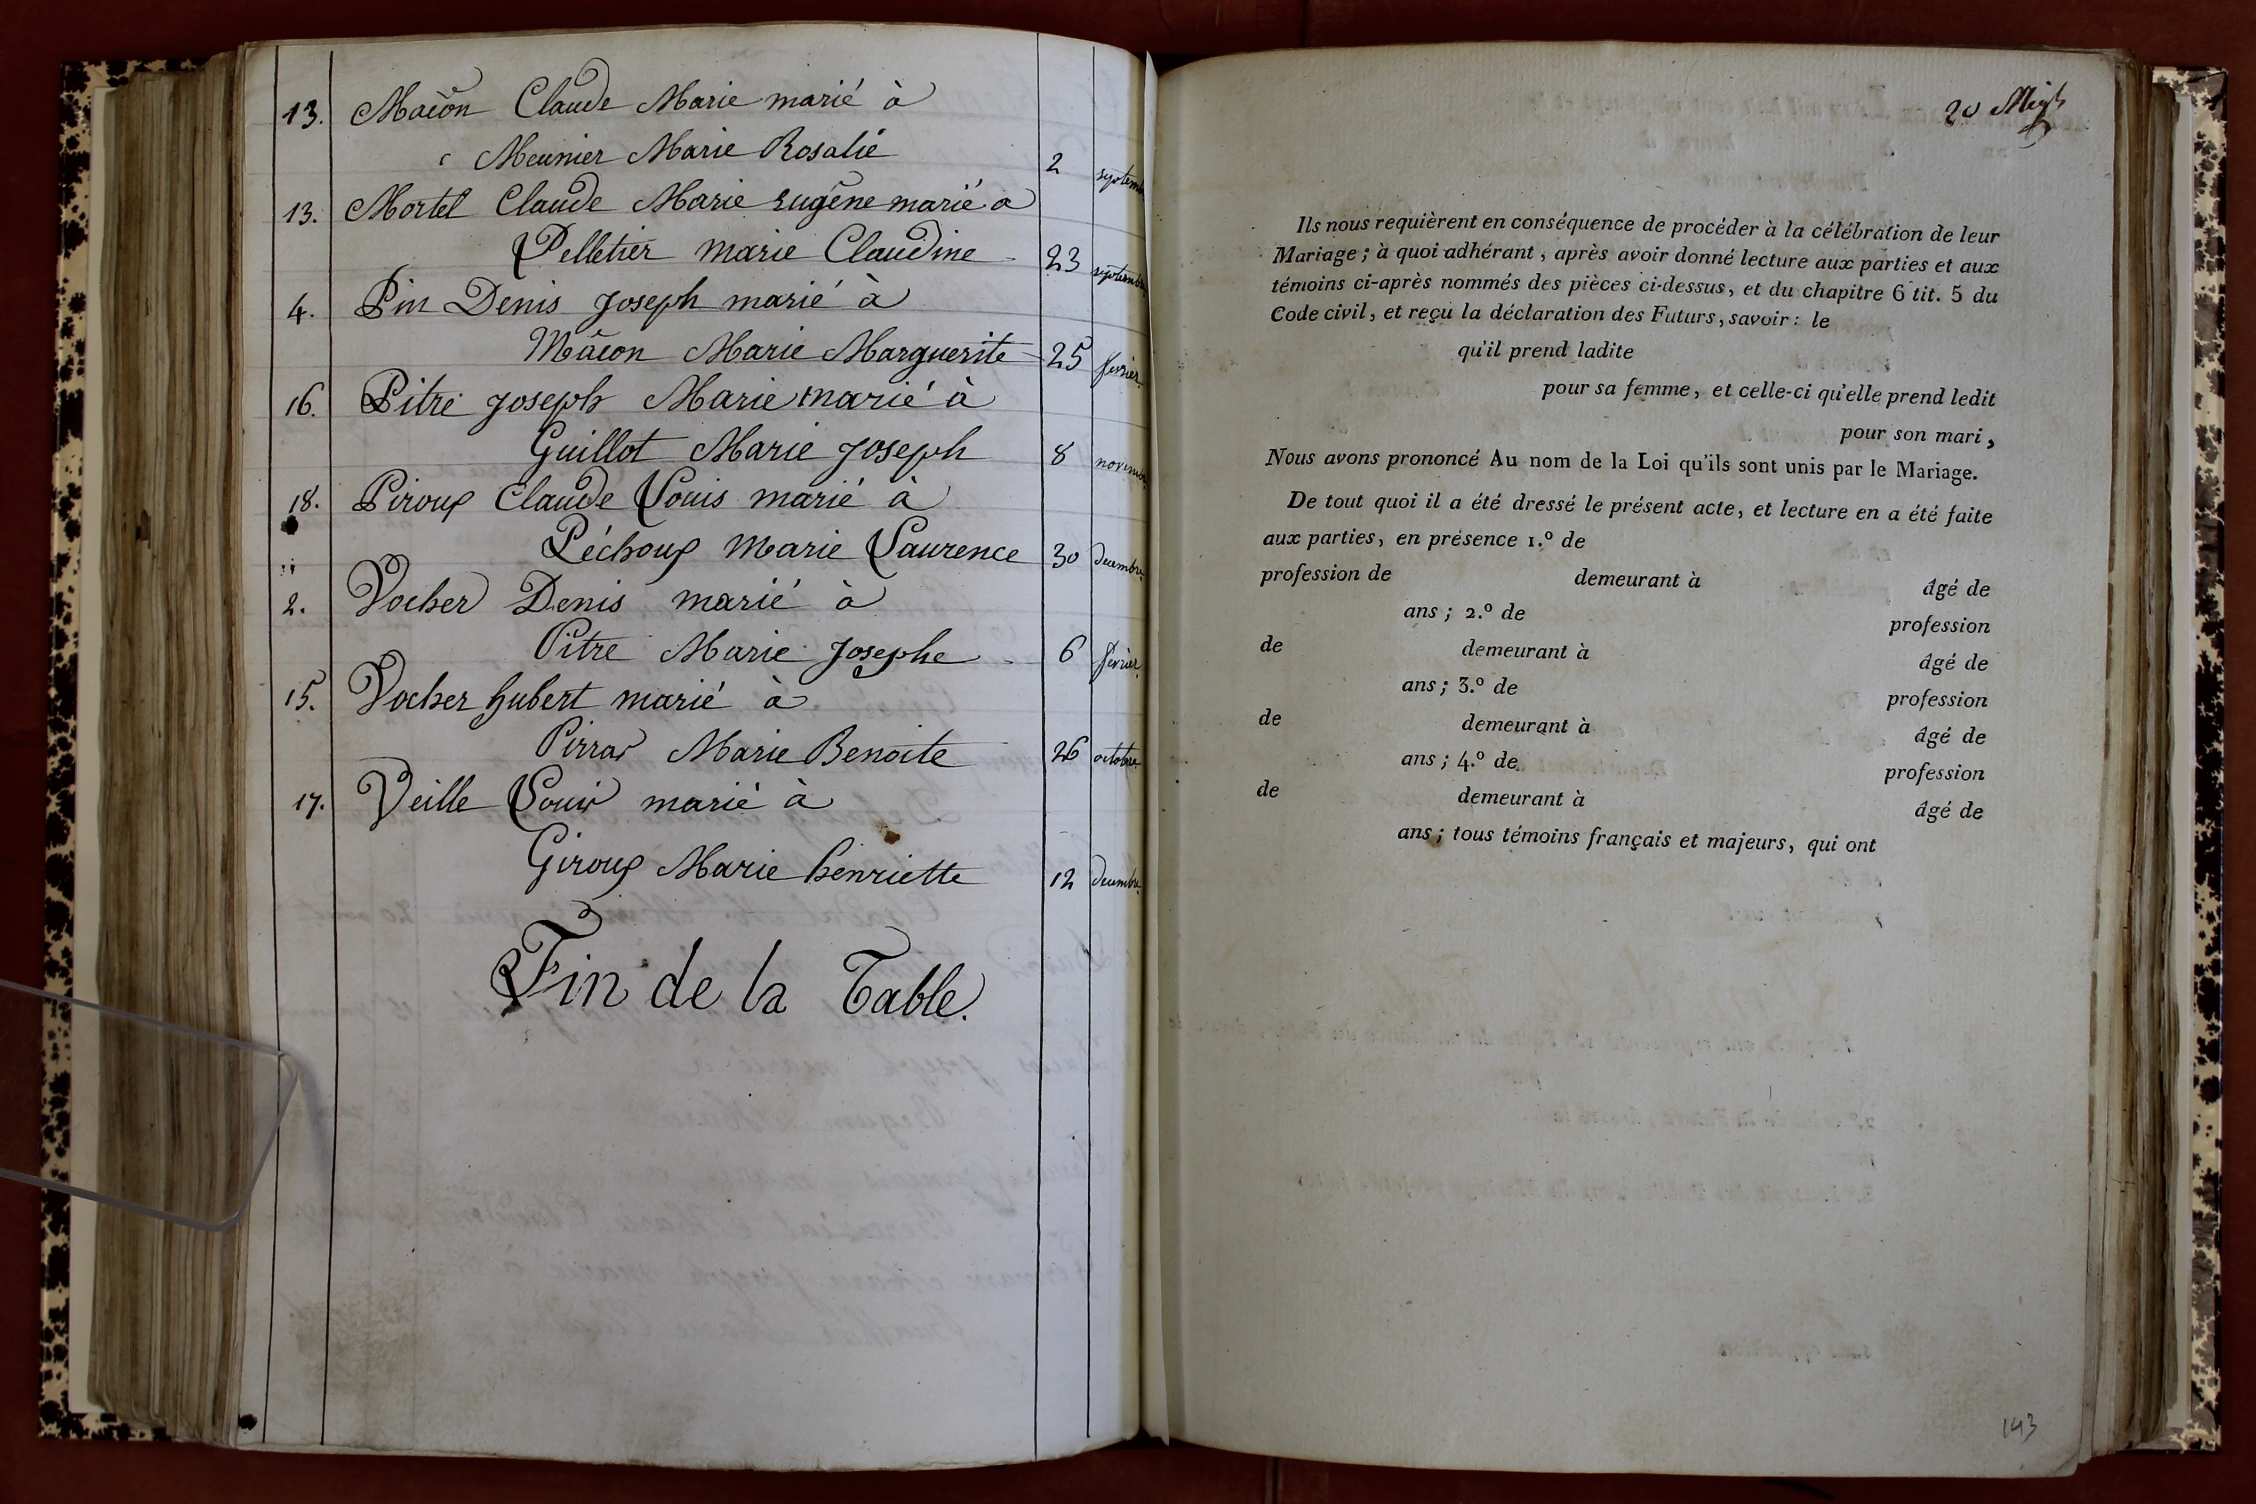 13. Mâcon Claude Marie marié à
Meunier Marie Rosalie 2 septemb
13. Mortel Claude Marie Eugêne marié a
Pelletier Marie Claudine 23 septembre
4. Pin Denis Joseph marié à
Mâcon Marie Marguerite 25 fevrier
16. Pitre Joseph Marie marié à
Guillot Marie Joseph 8 novembre
18. Piroux Claude Louis marié à
Péchoux Marie Laurence 30 decembre
2. Vocher Denis marié à
Pitre Marie Josephe 6 fevrier
15. Vocher hubert marié à
Marie Benoite 26 octobre
17. Veille Louis marié à
Giroux Marie henriette 12 decembre
Fin de la Table.
20
Ils nous requièrent en conséquence de procéder à la célébration de leur
Mariage ; à quoi adhérant, après avoir donné lecture aux parties et aux
témoins ci-après nommés des pièces ci-dessus, et du chapitre 6 tit. 5 du
Code civil, et reçu la déclaration des Futurs, savoir : le
qu'il prend ladite
pour sa femme, et celle-ci qu'elle prend ledit
pour son mari,
Nous avons prononcé Au nom de la Loi qu'ils sont unis par le Mariage.
De tout quoi il a été dressé le présent acte, et lecture en a été faite
aux parties, en présence 1.º de
profession de demeurant à âgé de
ans ; 2.º de profession
de demeurant à âgé de
ans ; 3.º de profession
de demeurant à âgé de
ans ; 4.º de profession
de demeurant à âgé de
ans ; tous témoins français et majeurs, qui ont
143